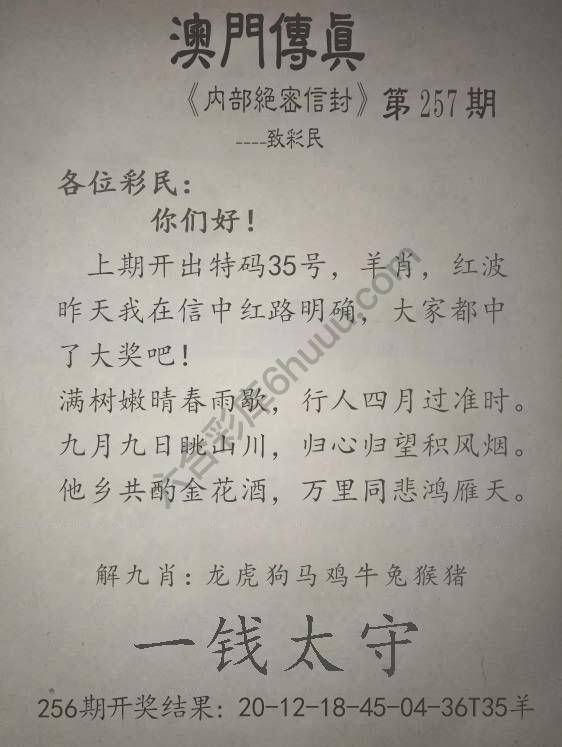 澳門傳真
《内部絕密信封》第257期
----致彩民
各位彩民：
你们好！
上期开出特码35号，羊肖，红波
昨天我在信中红路明确，大家都中
了大奖吧！
满树嫩晴春雨歇，行人四月过准时。
九月九日眺山川，归心归望积风烟。
他乡共酌金花酒，万里同悲鸿雁天。
解九肖：龙虎狗马鸡牛兔猴猪
一钱太守
256期开奖结果：20-12-18-45-04-36T35羊
六合彩库6huuu.com